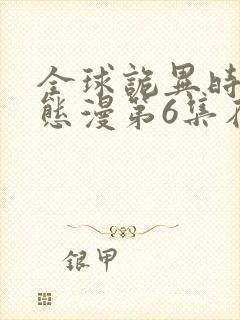 全球詭異時
態漫第6集在
銀甲